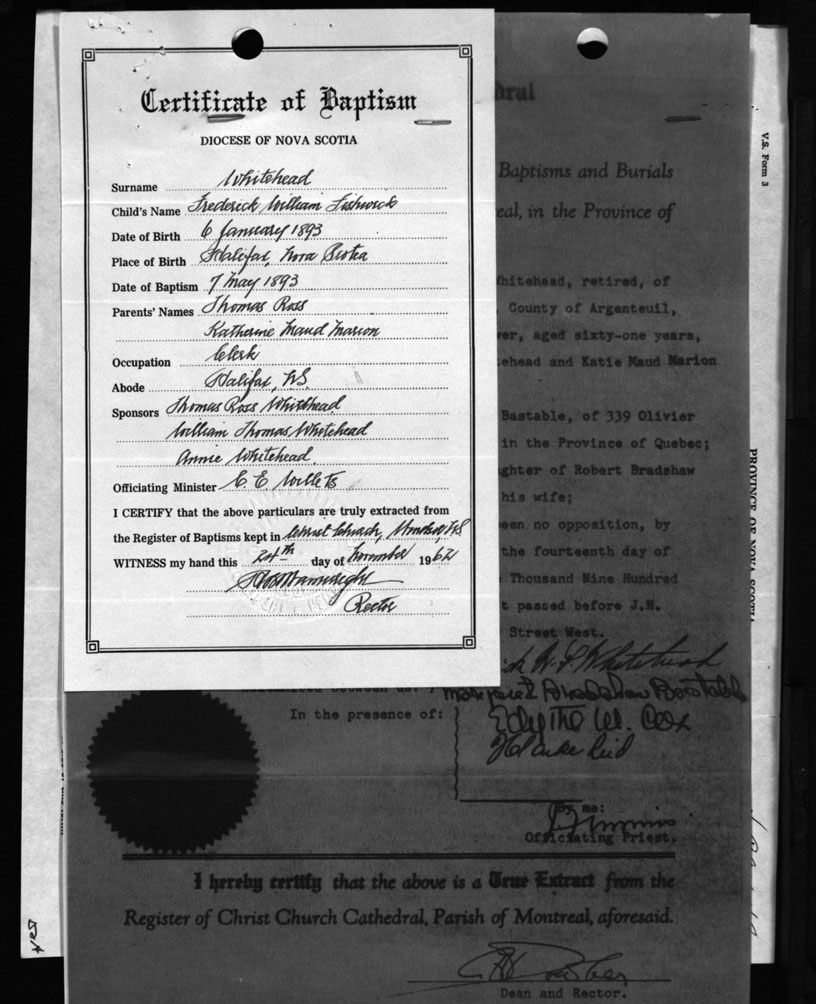 Certificate of Baptism
DIOCESE OF NOVA SCOTIA
Surname Whitehead
Child's Name Frederick William Fishwick
Date of Birth 6 January 1893
Place of Birth Halifax, Nova Scotia
Date of Baptism 7 May 1893
Parents' Names Thomas Ross
Katherine Maud Marion
Occupation Clerk
Abode Halifax, N.S.
Sponsors Thomas Ross Whitehead
William Thomas Whitehead
Annie Whitehead
Officiating Minister E E Willets
I CERTIFY that the above particulars are truly extracted from
the Register of Baptisms kept in Christ Church, NS
WITNESS my hand this 24th day of November 1962
Rector
dral
Baptisms and Burials
eal, in the Province of
hitehead, retired, of
County of Argenteuil,
er, aged sixty-one years,
tehead and Katie Maud Marion
Bastable, of 339 Olivier
in the Province of Quebec;
ghter of Robert Bradshaw
his wife;
een no opposition, by
the fourteenth day of
Thousand Nine Hundred
t passed before J.H.
Street West.
W. F Whitehead
between us.
Margaret Bradshaw Bastable
In the presence of:
Edythe W. Cox
By me:
Officiating Priest.
I hereby certify that the above is a True Extract from the
Register of Christ Church Cathedral, Parish of Montreal, aforesaid.
Dean and Rector.
V.S. Form 3
PROVINCE OF NOVA SCOTIA